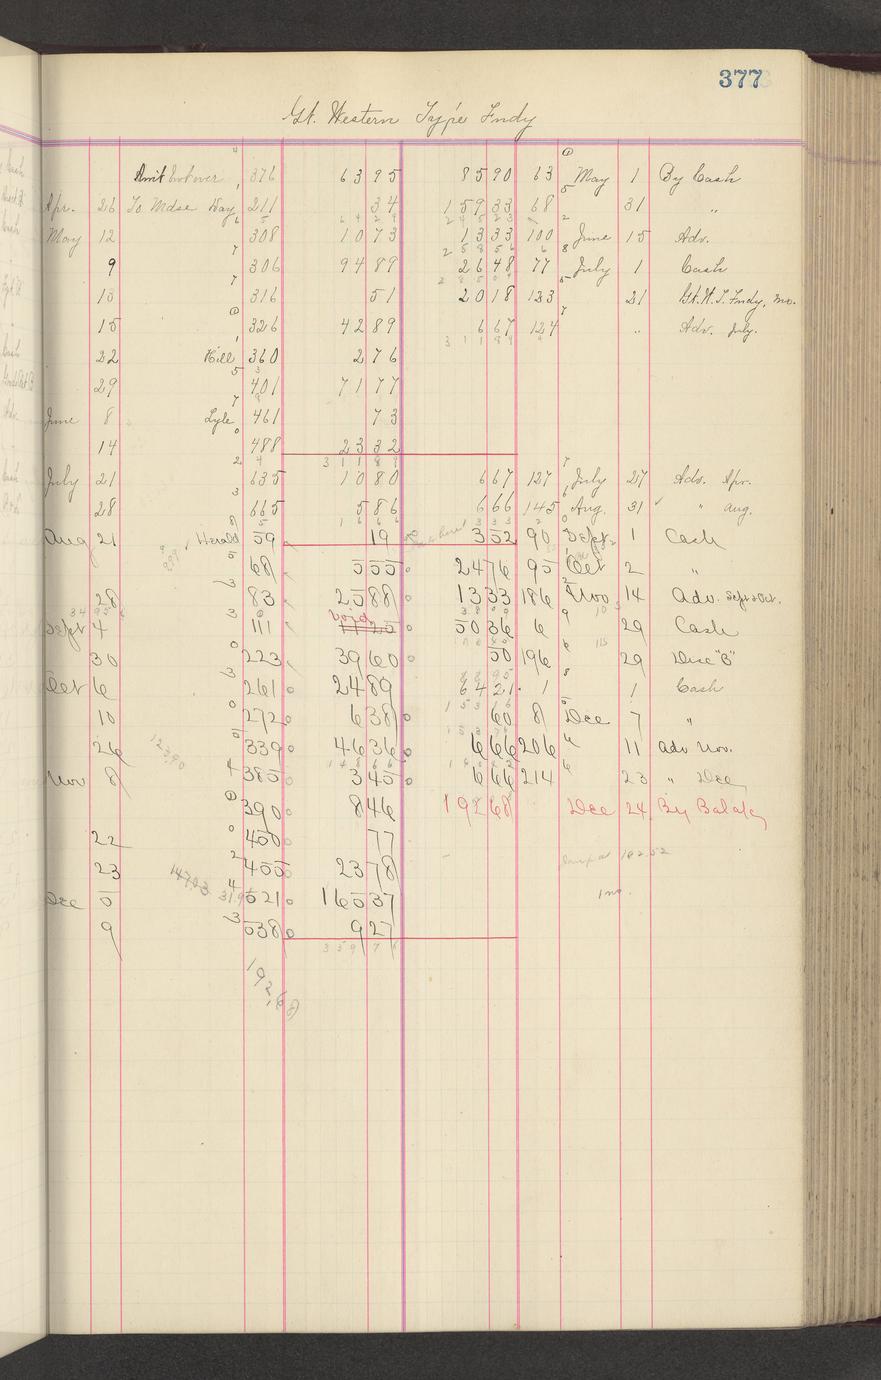 377
Gt. Western Type Fndy
Amt bot over 376 63 95 85 90 63 May 1 By Cash
Apr. 26 To Mdse Way 211 34 159 33 68 31 "
May 12 308 10 73 13 33 100 June 15 Adv.
9 306 94 89 26 48 77 July 1 Cash
13 316 51 20 18 123 21 Gt. W. T. Fndy, mo.
15 326 42 89 6 67 124 " Adv. July.
22 Hill 360 2 76
29 401 71 77
June 8 Lyle 461 73
14 488 23 32
311 89
July 21 635 10 80 6 67 127 July 27 Adv. Apr.
28 665 5 86 6 66 145 Aug. 31 " Aug.
Aug 21 Herald 59 19 3 52 90 Sept 1 Cash
68 5 55 24 76 95 Oct 2 "
28 83 25 88 13 33 186 Nov 14 Adv. Sept & Oct.
Sept 4 111 void 11 25 50 36 6 29 Cash
30 223 39 60 50 196 29 Disc "B"
Oct 6 261 24 89 64 21 1 1 Cash
10 272 6 38 60 8 Dec 7 "
26 339 46 36 6 66 206 11 Adv Nov.
Nov 8 385 3 45 6 66 214 23 " Dec
390 8 46 192 68 Dec 24 By Balance
22 450 77
23 455 23 78 182.52
Dec 5 521 165 37 1 mo.
9 538 9 27
359 7
192,68